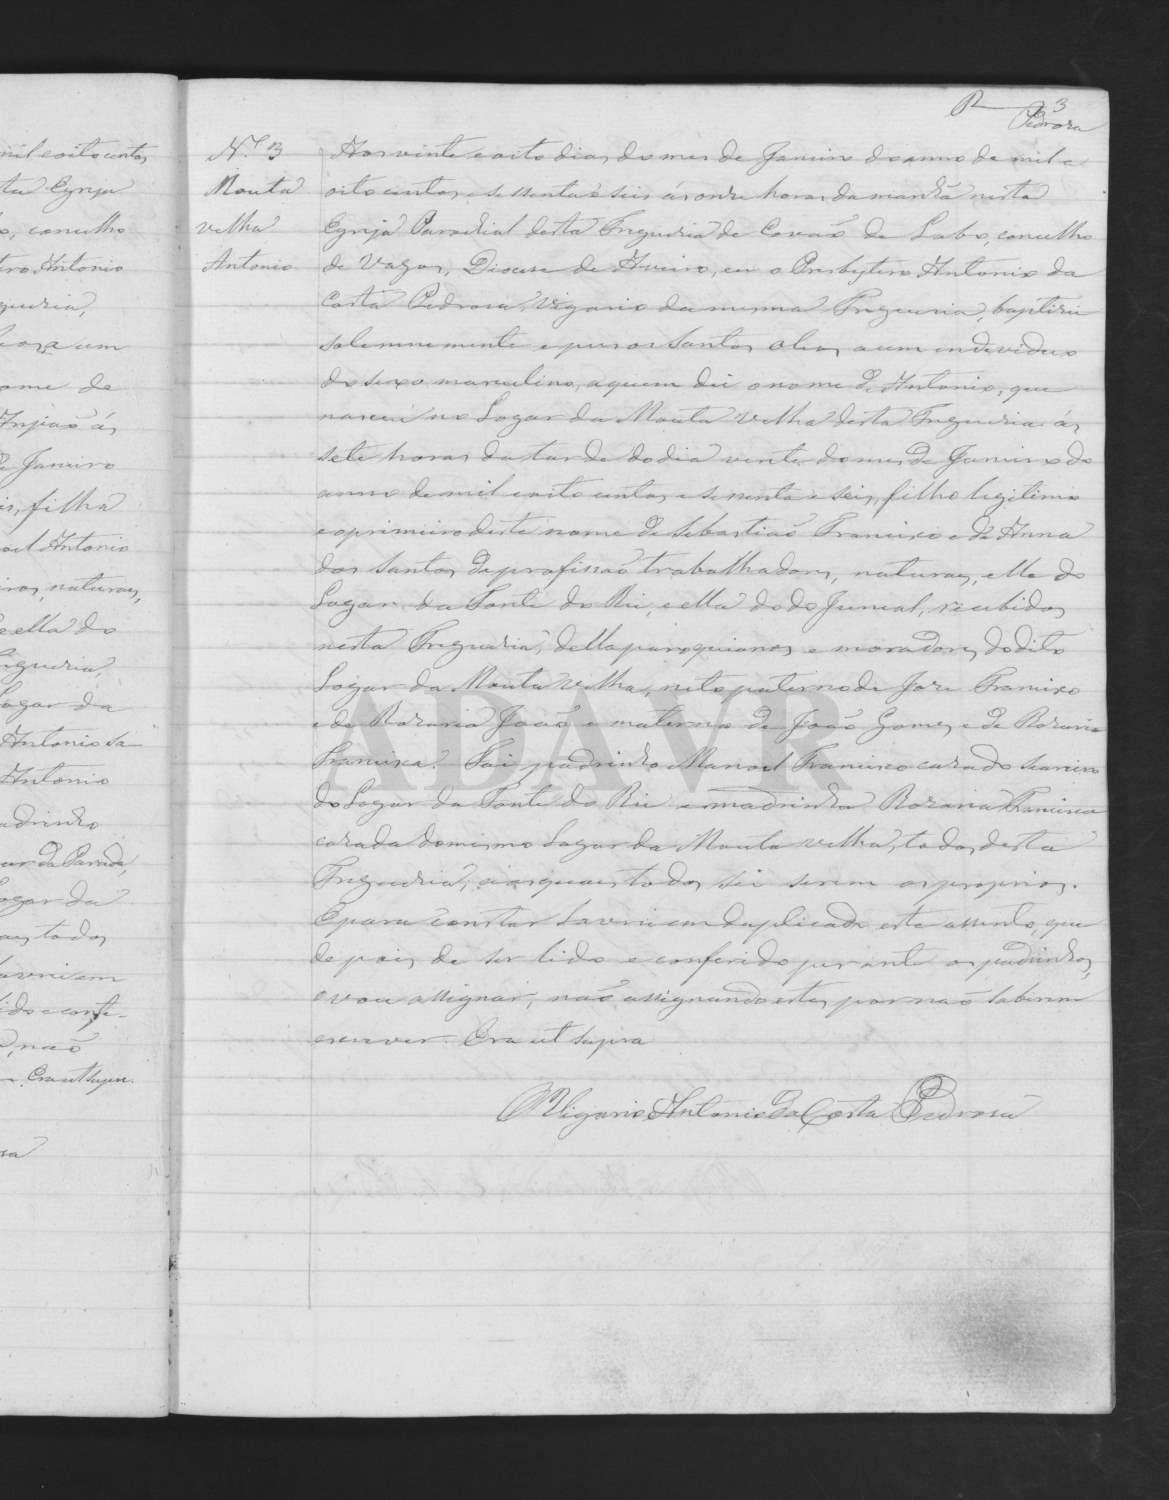 R 3
Pedrosa
mil e oito centos
ta Egreja
o, concelho
tero Antonio
gueria,
leos, a um
ome de
Fujião ás
de Janeiro
is, filha
oel Antonio
iros, naturaes,
e ella do
regueria,
Logar da
Antonio
adrinho
ar da Parada,
Logar da
aes todos
lavrei em
lido e confe-
não
Era ut supra.
sa
N.º 3
Mouta
velha
Antonio
Aos vinte e oito dias do mes de Janeiro do anno de mil e
oito centos e sessenta e seis ás onze horas da manhã nesta
Egreja Parochial desta Fregueria de Covão do Lobo, concelho
de Vagos, Diocese de Aveiro, eu o Presbytero Antonio da
Costa Pedrosa, Vigario da mesma Fregueria, baptisei
solemnemente e pus os Santos oleos a um individuo
do sexo masculino, a quem dei o nome de Antonio, que
nasceu no Logar da Mouta velha desta Fregueria ás
sete horas da tarde do dia vinte do mes de Janeiro do
anno de mil e oito centos e sessenta e seis, filho legitimo
e o primeiro deste nome de Sebastião Francisco e de Anna
dos Santos, de profissão trabalhadores, naturaes, elle do
Logar da Fonte do Rii, e ella do do Juncal, recebidos
nesta Fregueria, della paroquianos e moradores do dito
Logar da Mouta velha, neto paterno de Jose Francisco
e de Rozaria João e materno de João Gomes e de Rozaria
Francisca. Foi padrinho Manoel Francisco cazado
do Logar da Fonte do Rii e madrinha Rozaria Francisca
cazada do mesmo Logar da Mouta velha, todos desta
Fregueria, os quaes todos sei serem os proprios.
E para constar lavrei em duplicado este assento, que
depois de ser lido e conferido perante os padrinhos,
e vou assignar, não assignando estes por não saberem
escrever. Era ut supra
O Vigario Antonio da Costa Pedrosa
ADAVR